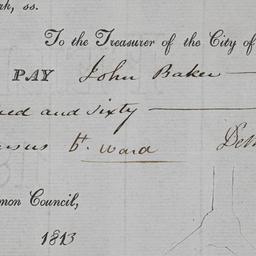 rk, ss.
To the Treasurer of the City of
PAY John Baker
red and sixty
nsus ward
mon Council,
1813